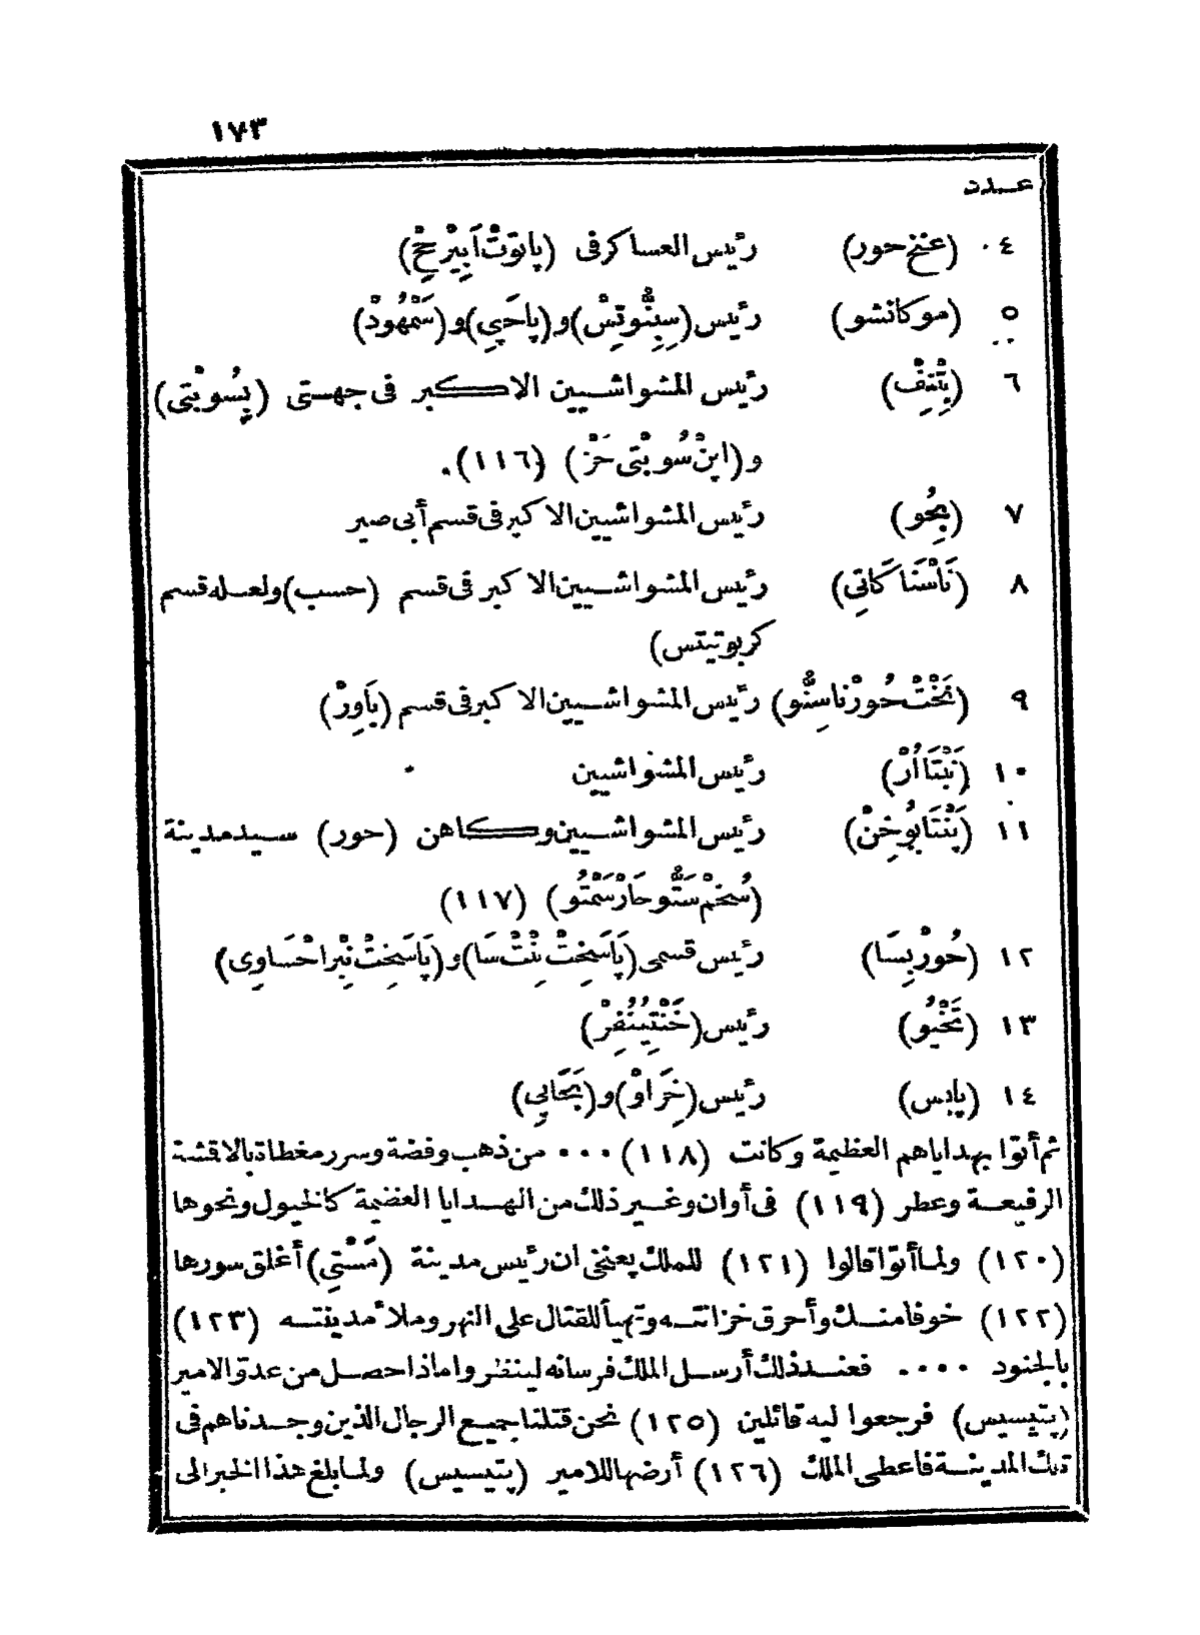 ١٧٣
عدد
٠٤ (عنخ حور) رئيس العساكر فى (پاتوتْ اَپِيرْحِحْ)
٥ (موكانشو) رئيس (سِبِنُّوتِسْ) و (پاحَپِي) و (سَمْهُودْ)
٦ (پِثْنِفِّ) رئيس المشواشيين الاكبر فى جهتى (پِسُوبْتى)
و (اپنْ سُوبْتى حَزْ) (١١٦).
٧ (پِحُو) رئيس المشواشيين الاكبر فى قسم أبى صير
٨ (نَاسْنَا كَاتِي) رئيس المشواشيين الاكبر فى قسم (حسب) ولعله قسم
كربوتيتس)
٩ (نَخْتْ حُورْنَاسِنُّو) رئيس المشواشيين الاكبر فى قسم (بَاوِرْ)
١٠ (نَبْتَااُرْ) رئيس المشواشيين
١١ (پَنْتَابُوخِنْ) رئيس المشواشيين وكاهن (حور) سيد مدينة
(سُخمْ سَتُّو حَارْسَمْتُو) (١١٧)
١٢ (حُورْبِسَا) رئيس قسمى (پَاسَخِتْ نِنْتْ سَا) و (پَاسَخِتْ نِبْرَاحْسَاوِى)
١٣ (تَخْيُو) رئيس (خَنْتِينُفِرْ)
١٤ (پابس) رئيس (خِرَاوْ) و (پَحَاپِي)
ثم أتوا بهداياهم العظيمة وكانت (١١٨) ٠٠٠ من ذهب وفضة وسرر مغطاة بالاقشة
الرفيعة وعطر (١١٩) فى أوان وغير ذلك من الهدايا العضيمة كالخيول ونحوها
(١٢٠) ولما أتوا قالوا (١٢١) للملك پعنخى ان رئيس مدينة (مَسْتِي) أغلق سورها
(١٢٢) خوفا منك وأحرق خزانته وتهيأ للقتال على النهر وملأ مدينته (١٢٣)
بالجنود ٠٠٠٠ فعند ذلك أرسل الملك فرسانه لينظروا ماذا حصل من عدوّ الامير
(پتيسيس) فرجعوا ليه قائلين (١٢٥) نحن قتلنا جميع الرجال الذين وجدناهم فى
تلك المدينة فاعطى الملك (١٢٦) أرضها للامير (پتيسيس) ولما بلغ هذا الخبر الى